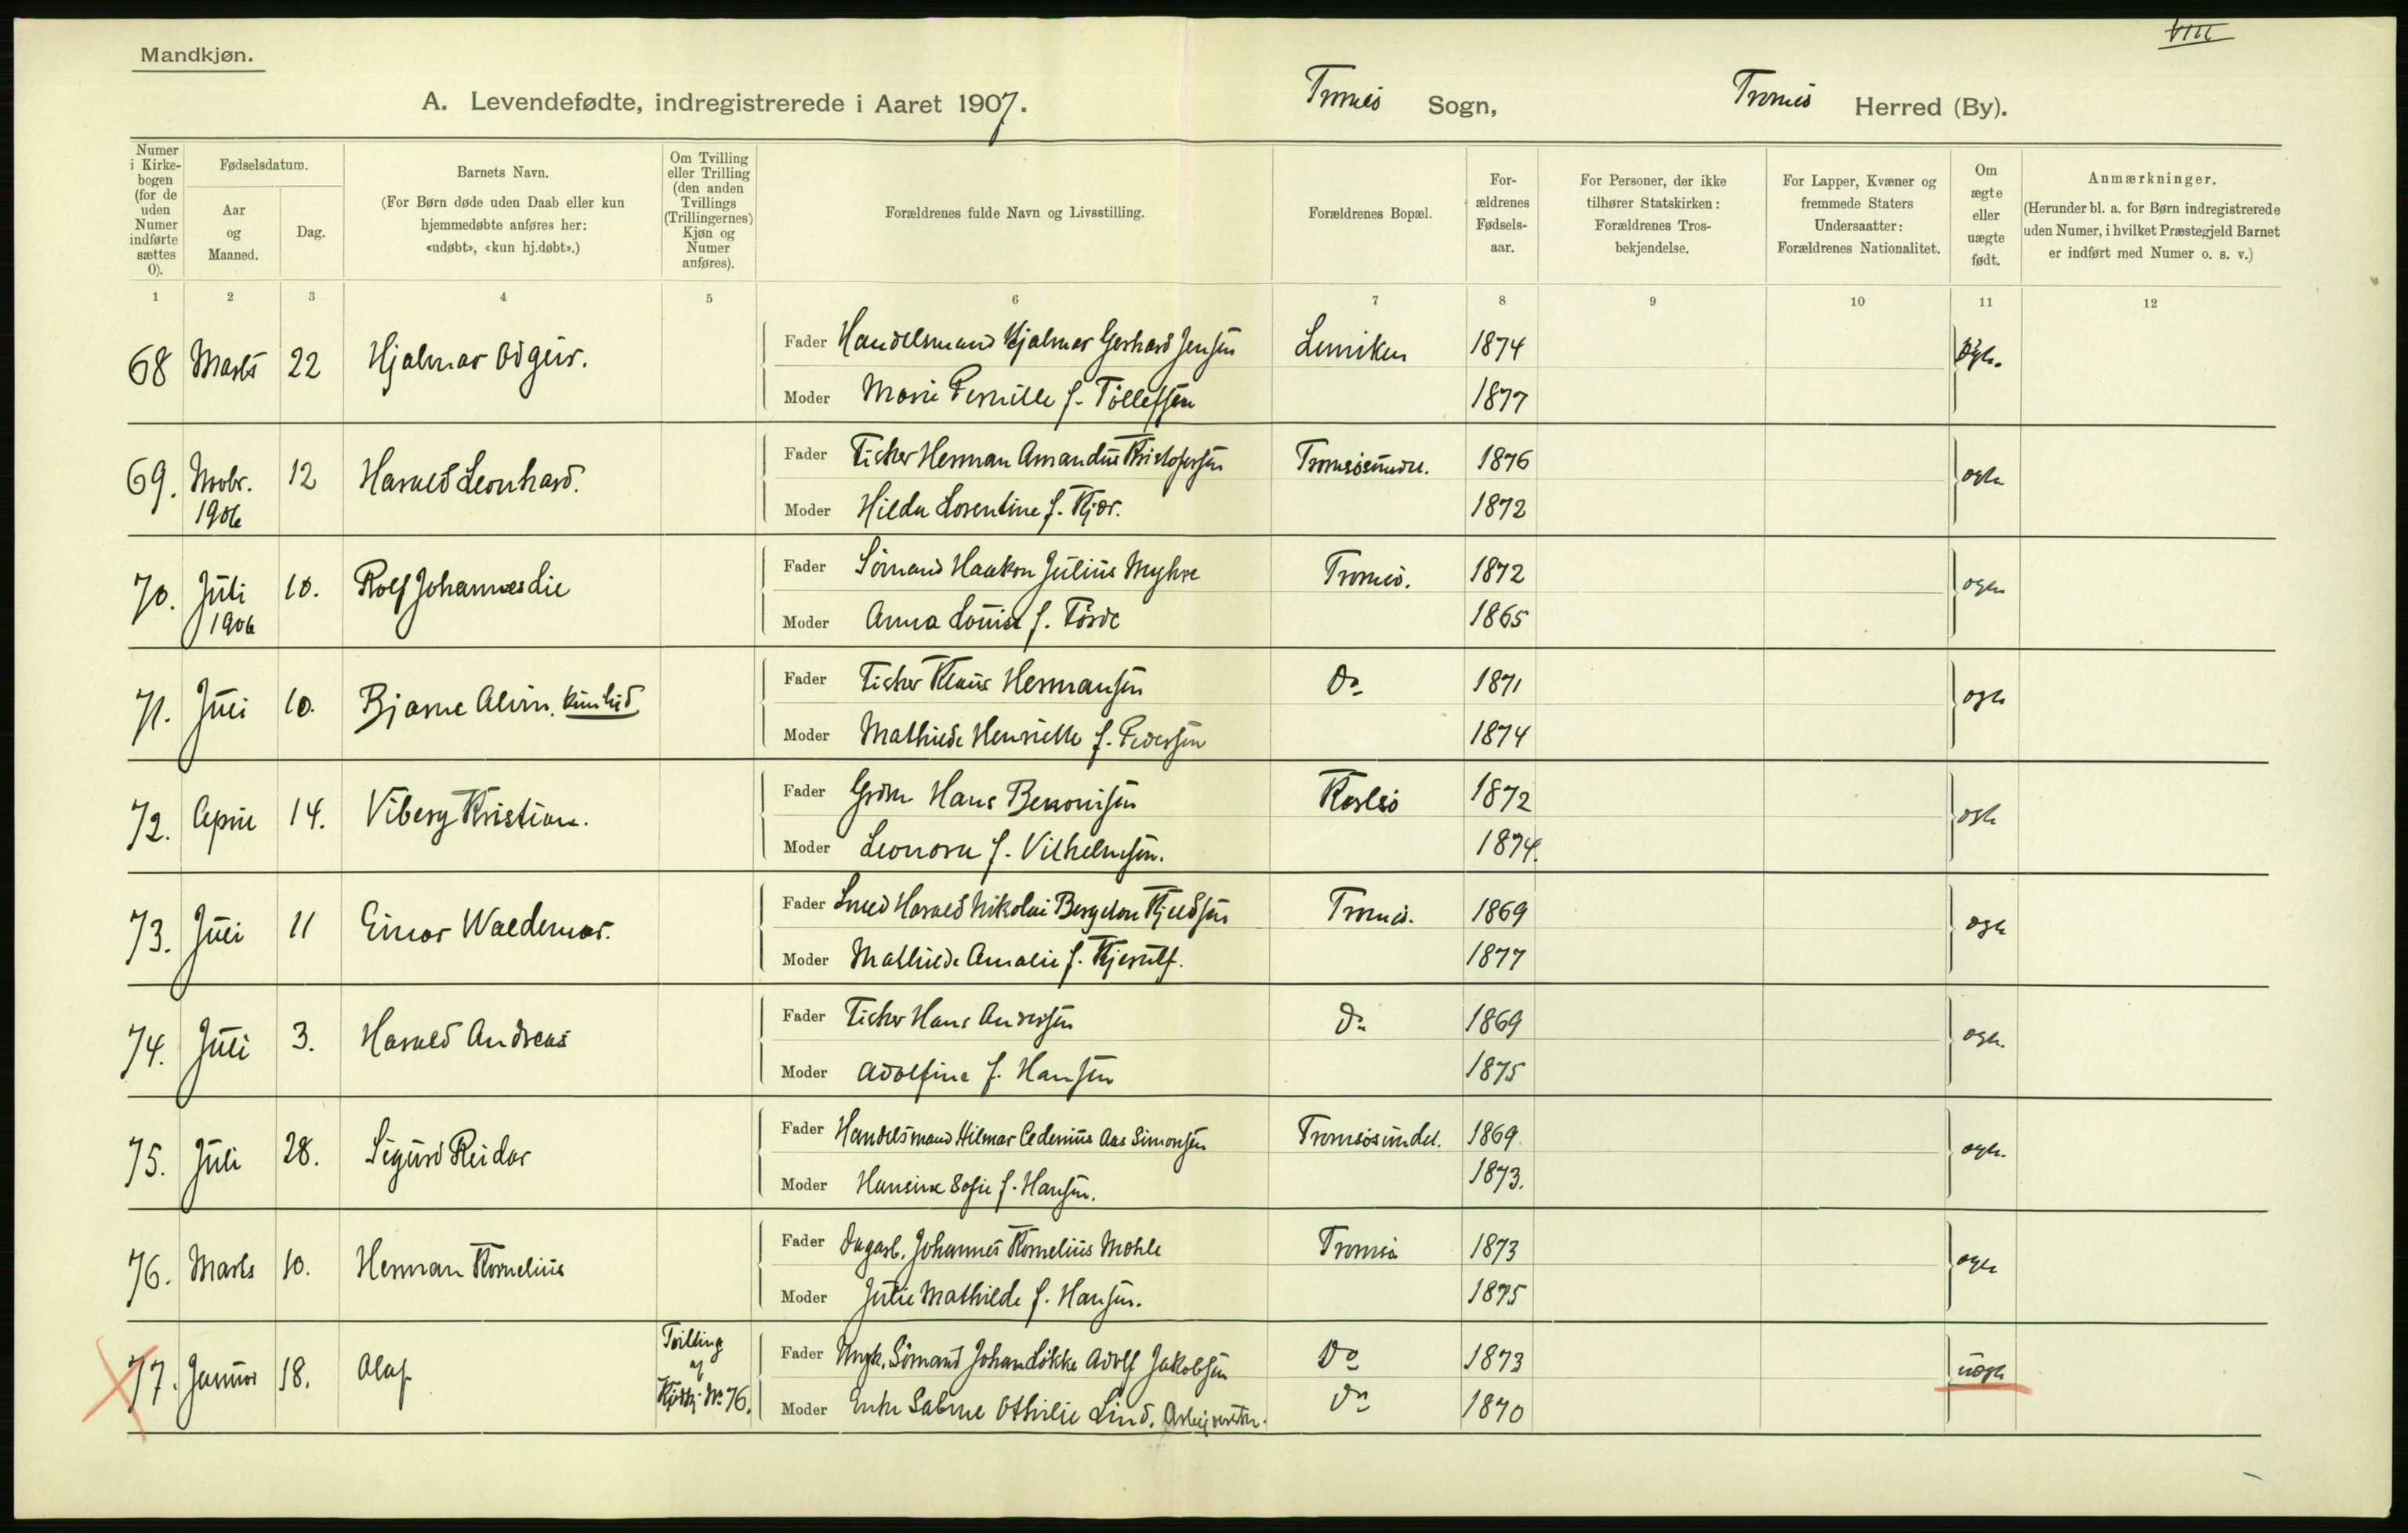 VIII
Mandkjøn.
A. Levendefødte, indregistrerede i Aaret 1907. Tromsø Sogn, Tromsø Herred (By).
Numer i Kirkebogen (for de uden Numer indførte sættes 0).
Fødselsdatum.
Aar og Maaned.
Dag.
Barnets Navn.
(For Børn døde uden Daab eller kun hjemmedøbte anføres her: «udøbt», «kun hj.døbt».)
Om Tvilling eller Trilling (den anden Tvillings (Trillingernes) Kjøn og Numer anføres).
Forældrenes fulde Navn og Livsstilling.
Forældrenes Bopæl.
Forældrenes Fødselsaar.
For Personer, der ikke tilhører Statskirken: Forældrenes Trosbekjendelse.
For Lapper, Kvæner og fremmede Staters Undersaatter: Forældrenes Nationalitet.
Om ægte eller uægte født.
Anmærkninger.
(Herunder bl. a. for Børn indregistrerede uden Numer, i hvilket Præstegjeld Barnet er indført med Numer o. s. v.)
1 2 3 4 5 6 7 8 9 10 11 12
68 Marts 22 Hjalmar Odgeir. Fader Handelsmand Hjalmar Gerhard Jensen 1874 ægte.
Moder Marie Pernille f. Tollefsen 1877
69. Novbr. 1906 12 Harald Leonhard. Fader Fisker Herman Amandus Kristofersen Tromsøsundet. 1876 ægte
Moder Hilda Lorentine f. Kjær. 1872
70. Juli 1906 10. Rolf Johannes Lie Fader Sømand Haakon Julius Myhre Tromsø. 1872 ægte
Moder Anna Louise f. Førde 1865
71. Juli 10. Bjarne Alvin. Fader Fisker Klaus Hermansen Do 1871 ægte
Moder Mathilde Henriette f. Pedersen 1874
72. April 14. Viberg Kristian. Fader Grdm Hans Benonisen Karlsø 1872 ægte
Moder Leonora f. Vilhelmsen. 1874.
73. Juli 11 Einar Waldemar. Fader Smed Harald Nikolai Bergeton Kjeldsen Tromsø. 1869 ægte
Moder Mathilde Amalie f. Kjerulf. 1877
74. Juli 3. Harald Andreas Fader Fisker Hans Andersen Do 1869 ægte.
Moder Adolfine f. Hansen 1875
75. Juli 28. Sigurd Reidar Fader Handelsmand Hilmar Cedenius Aas Simonsen Tromsøsundet. 1869. ægte.
Moder Hansine Sofie f. Hansen. 1873.
76. Marts 10. Herman Kornelius Fader Dagarb. Johannes Kornelius Mohle Tromsø 1873 ægte
Moder Julie Mathilde f. Hansen. 1875
77. Januar 18. Olaf Tvilling af Kvdkj. Nr. 76. Fader Ungk. Sømand Johan Løkke Adolf Jakobsen Do 1873 uægte
Moder Enke Sabine Othilie Lind. Do 1870